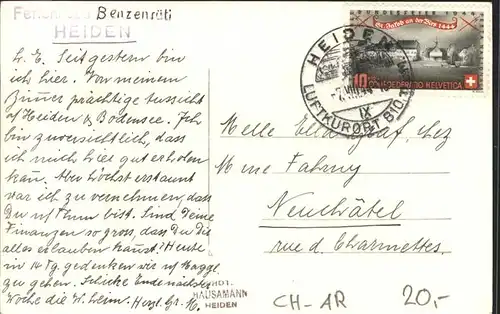 Ferienhaus Benzenrüti
HEIDEN
L. E. Seit gestern bin
ich hier. Von meinem
Zimmer prächtige Aussicht
auf Heiden & Bodensee. Ich
bin zuversichtlich, dass
ich mich hier gut erholen
kann. Aber höchst erstaunt
war ich zu vernehmen, dass
Du auf Thun bist. Sind Deine
Finanzen so gross, dass Du Dir
alles erlauben kannst? Heute
in 14 Tg. gedenken wir
zu gehen. Schicke Ende nächster
Woche die W. heim. Herzl. Gr. M.
BUNDESFEIER 1944
St. Jakob an der Birs 1444
10 CONFOEDERATIO HELVETICA
HEIDEN
LUFTKURORT 810
IX
Melle chez
Mme Fahrny
Neuchâtel
rue d. Charmettes.
PHOT.
HAUSAMANN
HEIDEN
CH-AR
20,-